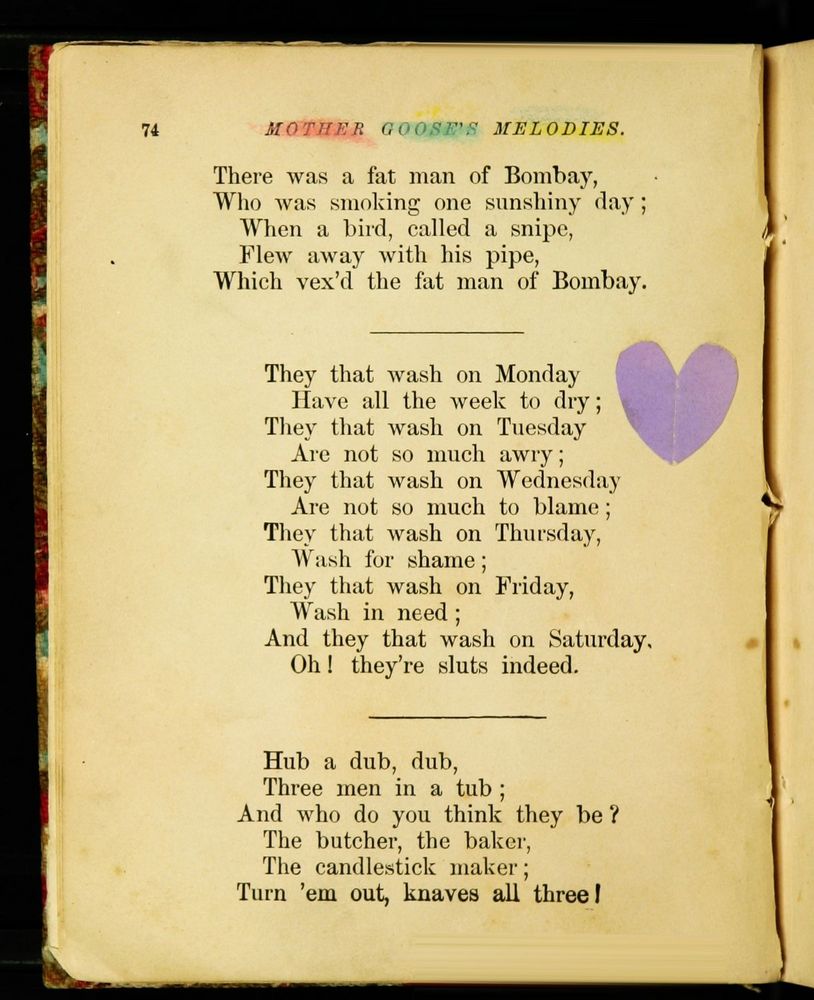 74
MOTHER GOOSE'S MELODIES.
There was a fat man of Bombay,
Who was smoking one sunshiny day;
When a bird, called a snipe,
Flew away with his pipe,
Which vex'd the fat man of Bombay.
They that wash on Monday
Have all the week to dry;
They that wash on Tuesday
Are not so much awry;
They that wash on Wednesday
Are not so much to blame;
They that wash on Thursday,
Wash for shame;
They that wash on Friday,
Wash in need;
And they that wash on Saturday,
Oh! they're sluts indeed.
Hub a dub, dub,
Three men in a tub;
And who do you think they be?
The butcher, the baker,
The candlestick maker;
Turn 'em out, knaves all three!